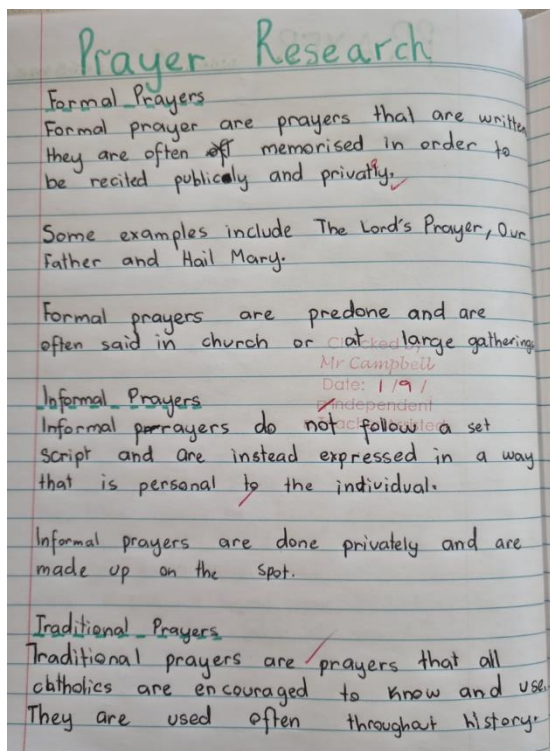 Prayer Research
Formal Prayers
Formal prayer are prayers that are written
they are often of memorised in order to
be recited publicly and privatly.
Some examples include The Lord's Prayer, Our
Father and Hail Mary.
Formal prayers are predone and are
often said in church or at large gatherings
Checked by
Mr Campbell
Date: 1/9/
Independent
Informal Prayers
Informal prayers do not follow a set
script and are instead expressed in a way
that is personal to the individual.
Informal prayers are done privately and are
made up on the spot.
Traditional Prayers
Traditional prayers are prayers that all
catholics are encouraged to know and use.
They are used often throughout history.